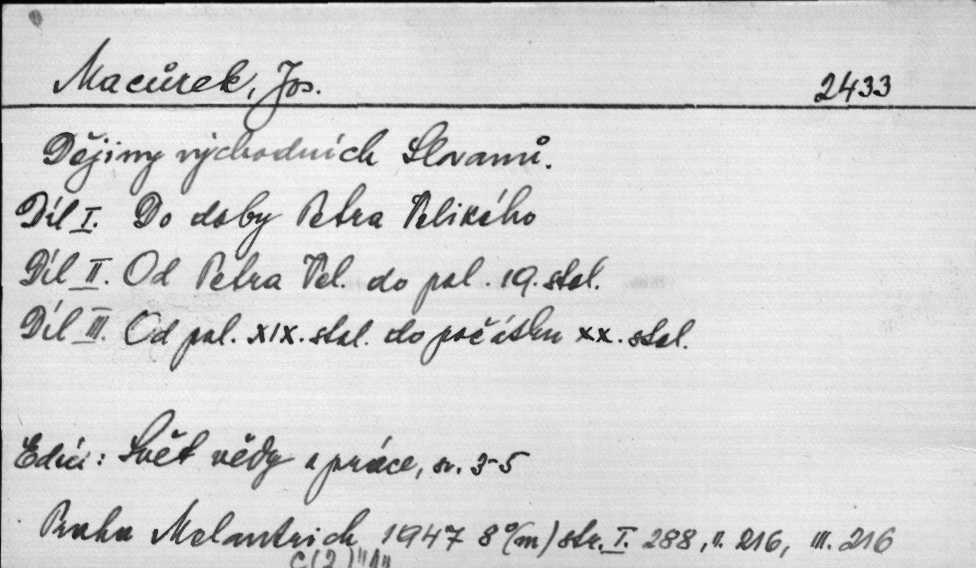 Macůrek, Jos. 2433
Dějiny východních Slovanů.
Díl I. Do doby Petra Velikého
Díl II. Od Petra Vel. do pol. 19. stol.
Díl III. Od pol. XIX. stol. do počátku XX. stol.
Edici: Svět vědy a práce, sv. 3-5
Praha Melantrich 1947 8°(m) str. I. 288, II. 216, III. 216
C(2)"1"